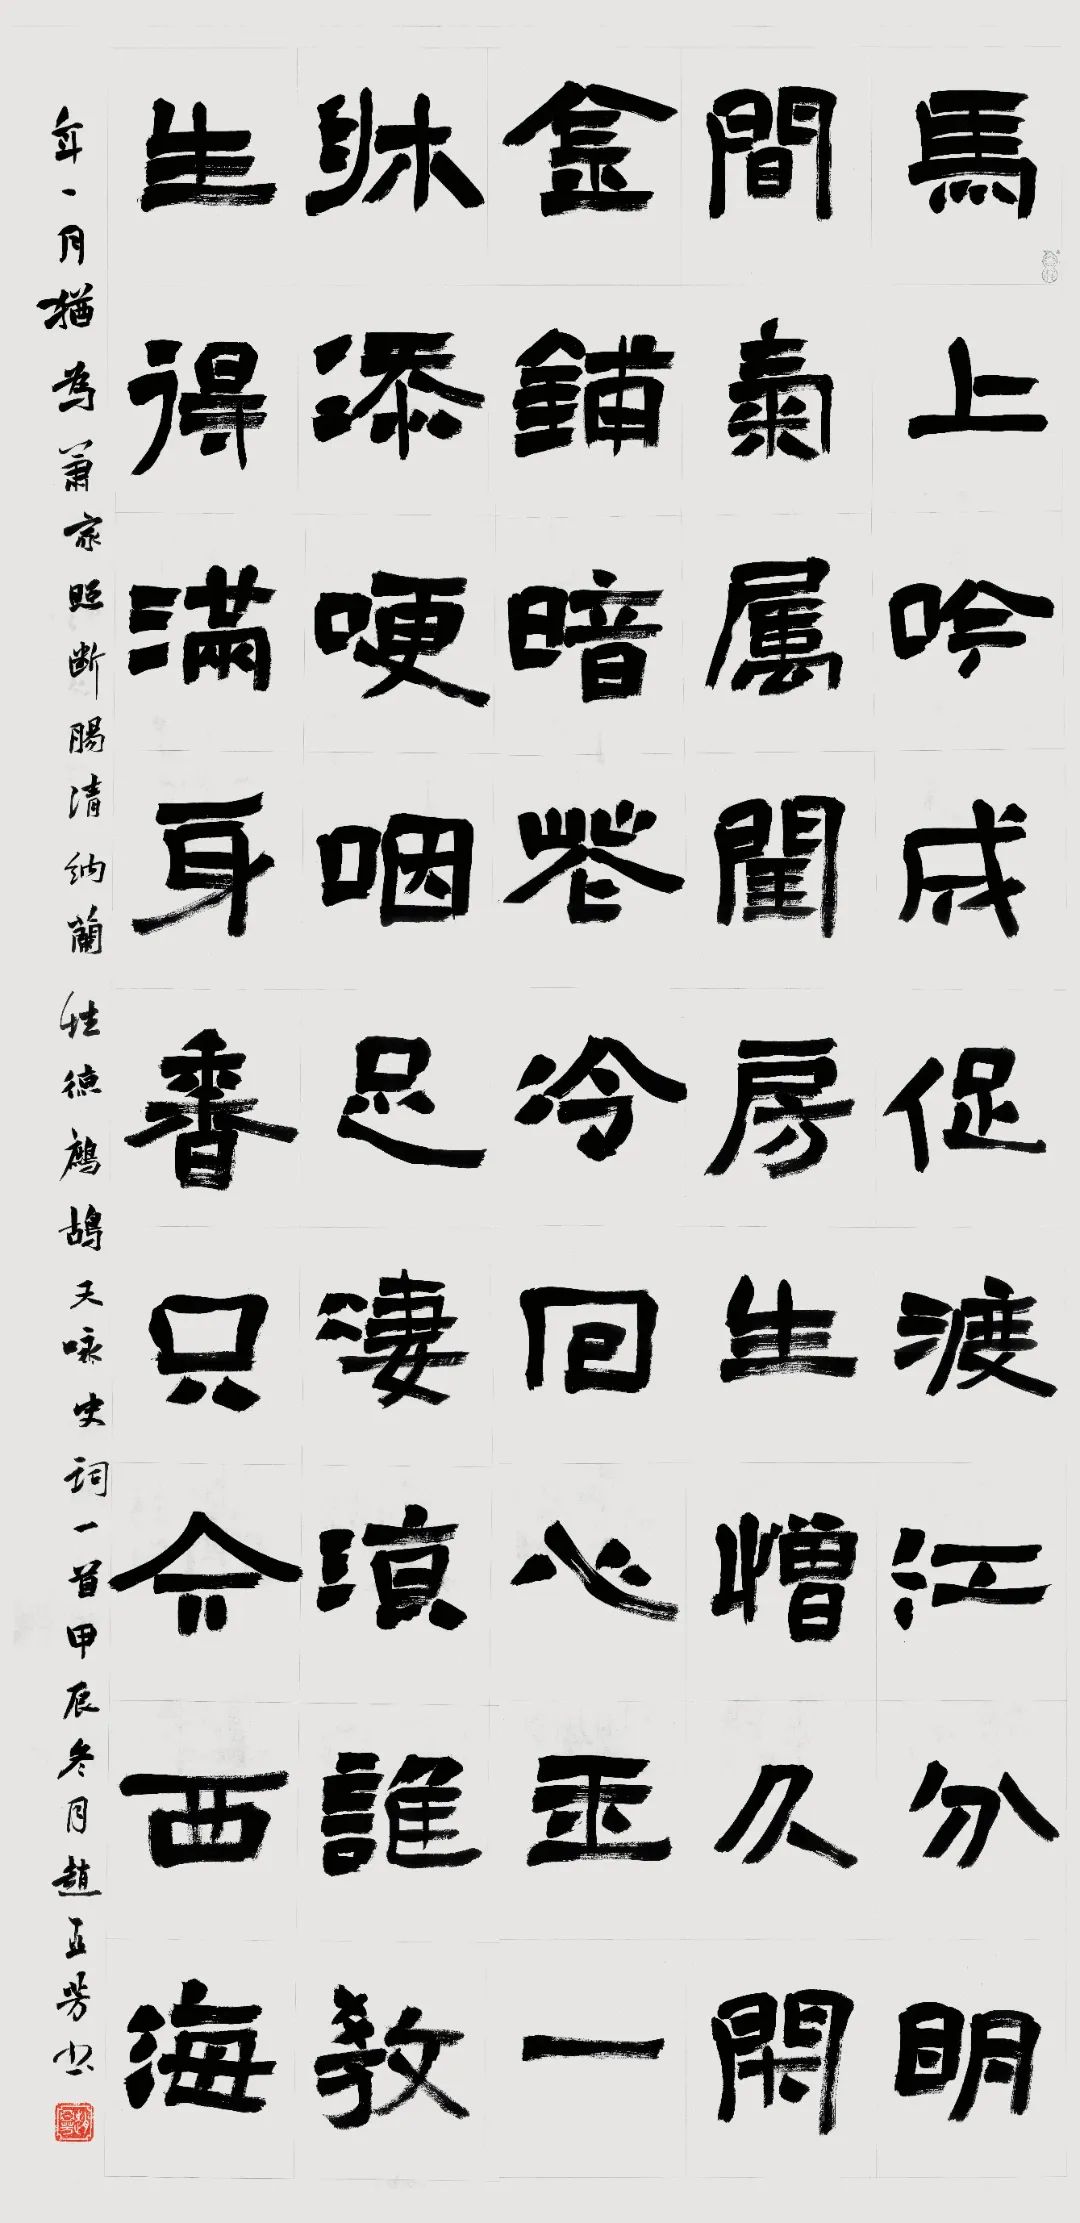 馬上吟成促渡江分明
間氣属閨房生憎久閉
金鋪暗花冷回心玉一
牀添哽咽足凄涼誰教
生得滿身香只今西海
年々月猶為蕭家照断腸清納蘭性德鷓鴣天咏史詞一首甲辰冬月趙亞芳书